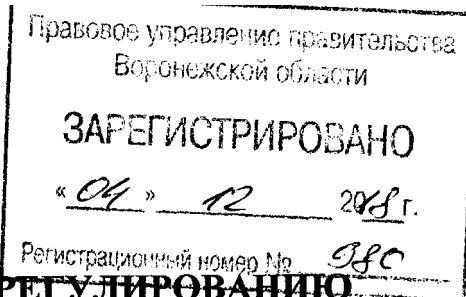 Правовое управление правительства
Воронежской области
ЗАРЕГИСТРИРОВАНО
« 04 » 12 2018 г.
Регистрационный номер № 980
РЕГУЛИРОВАНИЮ